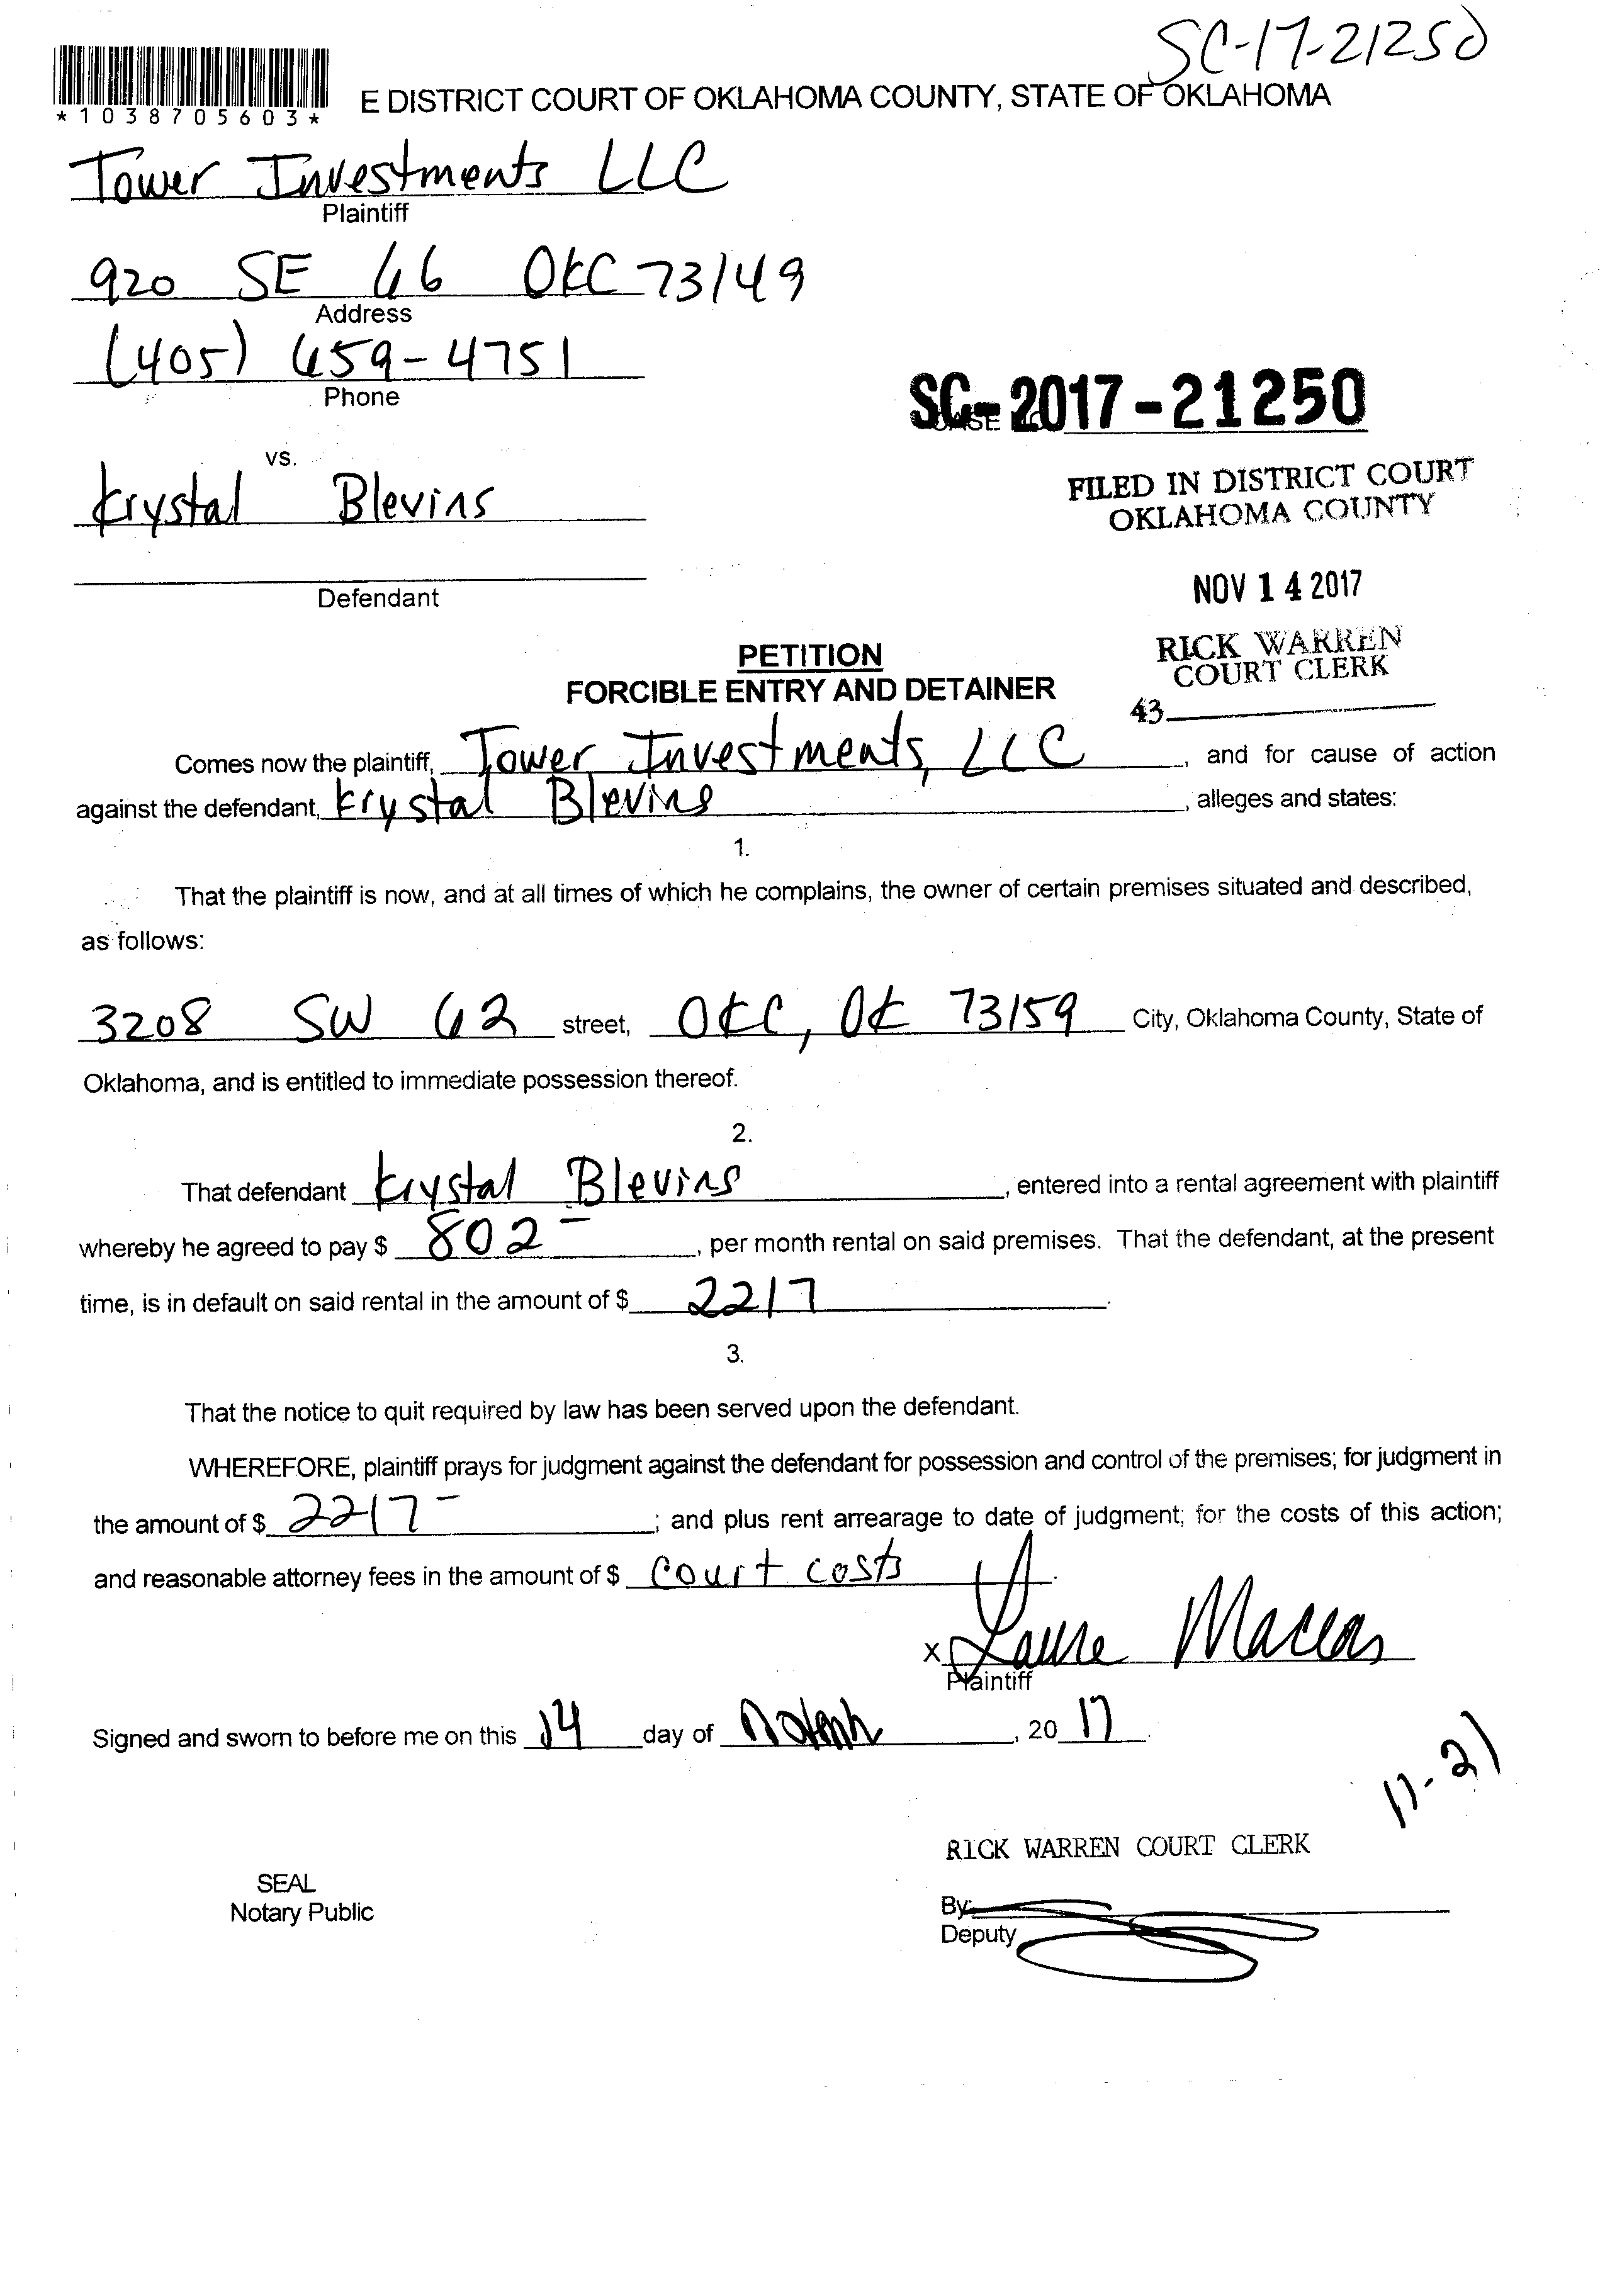 SC-17-21250
*1038705603*
E DISTRICT COURT OF OKLAHOMA COUNTY, STATE OF OKLAHOMA
Tower Investments LLC
Plaintiff
920 SE 66 OKC 73149
Address
(405) 659-4751
Phone
SC-2017-21250
vs.
Krystal Blevins
FILED IN DISTRICT COURT
OKLAHOMA COUNTY
Defendant
NOV 14 2017
PETITION
RICK WARREN
COURT CLERK
FORCIBLE ENTRY AND DETAINER
43
Comes now the plaintiff, Tower Investments, LLC, and for cause of action
against the defendant, Krystal Blevins, alleges and states:
1.
That the plaintiff is now, and at all times of which he complains, the owner of certain premises situated and described,
as follows:
3208 SW 62 street, OKC, OK 73159 City, Oklahoma County, State of
Oklahoma, and is entitled to immediate possession thereof.
2.
That defendant Krystal Blevins, entered into a rental agreement with plaintiff
whereby he agreed to pay $ 802-, per month rental on said premises. That the defendant, at the present
time, is in default on said rental in the amount of $ 2217.
3.
That the notice to quit required by law has been served upon the defendant.
WHEREFORE, plaintiff prays for judgment against the defendant for possession and control of the premises; for judgment in
the amount of $ 2217-; and plus rent arrearage to date of judgment; for the costs of this action;
and reasonable attorney fees in the amount of $ court costs.
x Laurie Macias
Plaintiff
Signed and sworn to before me on this 14 day of , 20 17.
11-21
RICK WARREN COURT CLERK
SEAL
Notary Public
By
Deputy